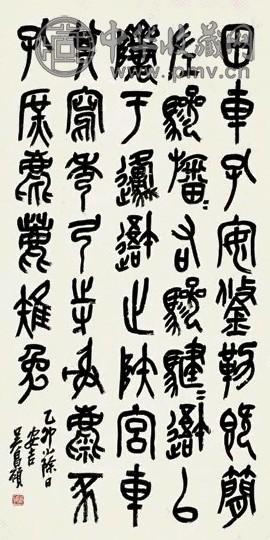 中华收藏网
www.pmv.cn
田車孔安鋚勒既簡
左驂旛＝右驂騝＝以
隮于邍邋止陝宮車
其寫秀弓寺射麋豕
孔庶麀鹿雉兔
乙卯小除日
安吉
吳昌碩